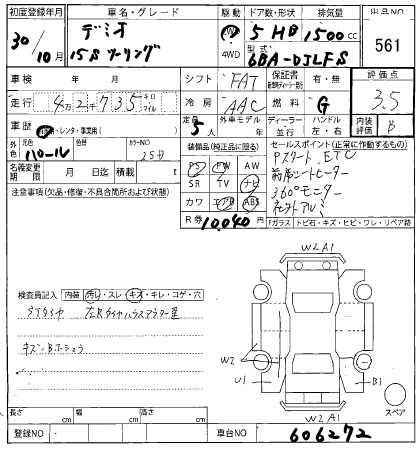 初度登録年月 車名・グレード 駆動 ドア数・形状 排気量 出品NO
30/10月 デミオ 2WD 5 HB 1500cc 561
15Sツーリング 4WD 型式 6BA-DJLFS
車検 年 月 シフト FAT 保証書 有・無 評価点
走行 4万2千735 キロ マイル 冷房 AAC 燃料 G 3.5
車歴 自家用・レンタ・事業用( ) 定員 5人 外車モデル 年 ディーラー 並行 ハンドル 左・右 内装評価 B
外色 元色 パール 色替 カラーNO 25D 装備品(純正品に限る) セールスポイント(正常に動作するもの)
名義変更期限 月 日迄 積載 t PS PW AW Pスタート、ETC
注意事項(欠品・修復・不具合箇所および状態) SR TV ナビ 前席シートヒーター
カワ エアB ABS 360°モニター
R券 10,040円 社外アルミ
Fガラス トビ石・キズ・ヒビ・ワレ・リペア跡
W2 A1
検査員記入 内装 汚れ・スレ・キズ・キレ・コゲ・穴
STタイヤ 左Rタイヤハウスアラウー豆
キズンBホシュウ
W2
U1 B1
スペア
W2 A1
長さ cm 幅 cm 高さ cm
登録NO 車台NO 606272